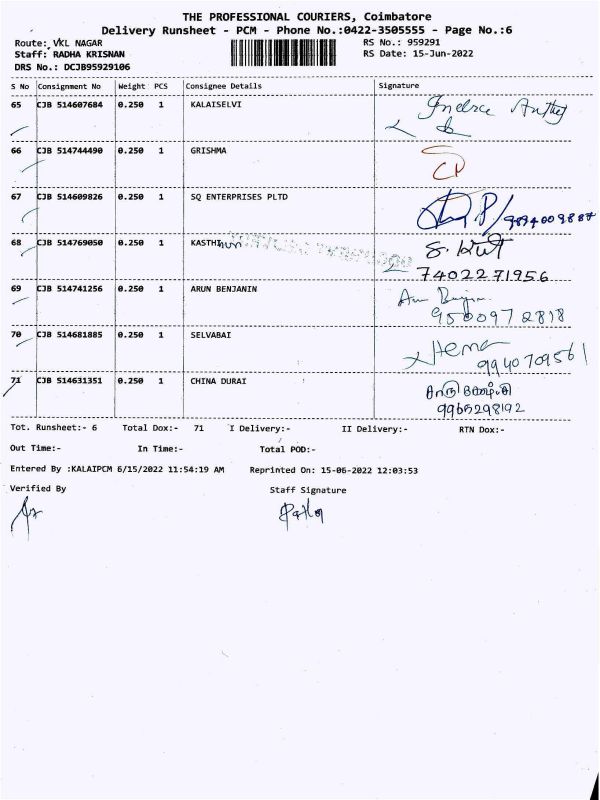 THE PROFESSIONAL COURIERS, Coimbatore
Delivery Runsheet - PCM - Phone No.:0422-3505555 - Page No.:6
Route: VKL NAGAR
RS No.: 959291
Staff: RADHA KRISNAN
RS Date: 15-Jun-2022
DRS No.: DCJB95929106
S No Consignment No Weight PCS Consignee Details Signature
65 CJB 514607684 0.250 1 KALAISELVI
66 CJB 514744490 0.250 1 GRISHMA
67 CJB 514609826 0.250 1 SQ ENTERPRISES PLTD
9894009887
68 CJB 514769050 0.250 1 KASTHURI
7402271956
69 CJB 514741256 0.250 1 ARUN BENJANIN
9500972818
70 CJB 514681885 0.250 1 SELVABAI Hema
9940709561
71 CJB 514631351 0.250 1 CHINA DURAI
9965298192
Tot. Runsheet:- 6 Total Dox:- 71 I Delivery:- II Delivery:- RTN Dox:-
Out Time:- In Time:- Total POD:-
Entered By :KALAIPCM 6/15/2022 11:54:19 AM Reprinted On: 15-06-2022 12:03:53
Verified By Staff Signature